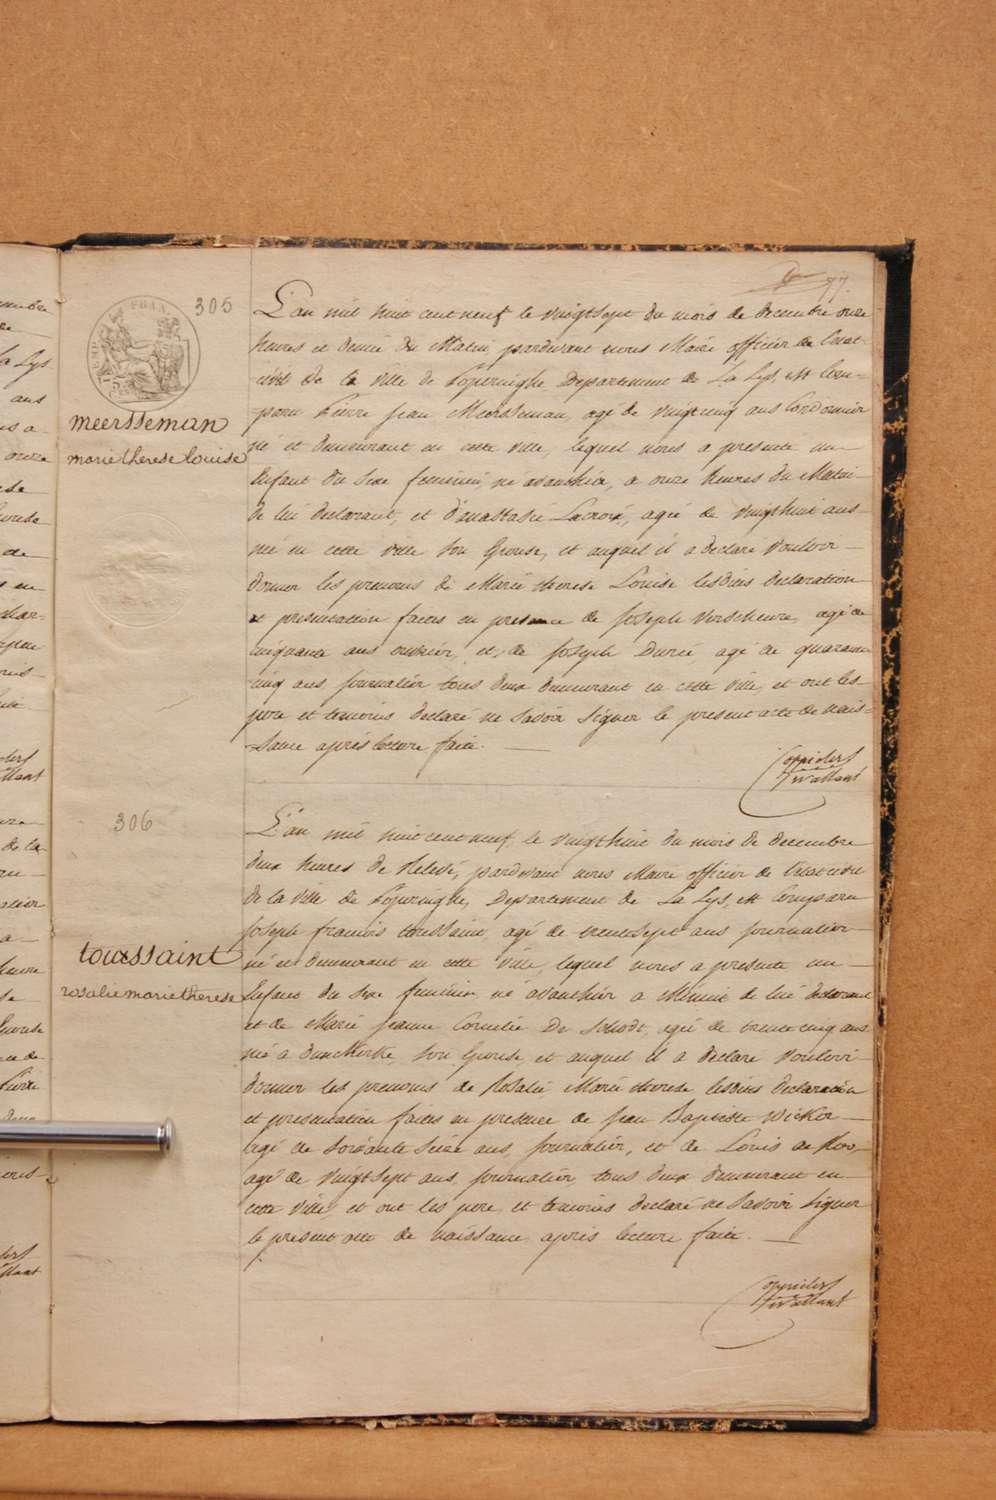 77.
305
meersseman
marie therese louise
L'an mil huit cent neuf le vingtsept du mois de decembre onze
heures et demie du Matin pardevant nous Maire officier de l'etat
civil de la ville de Poperinghe Departement de La Lys, est Com-
paru Pierre Jean Meersseman, agé de vingtcinq ans Cordonnier
né et demeurant en cette ville, lequel nous a presenté un
Enfant du sexe feminin, né avanthier, a onze heures du Matin
de lui declarant, et d'anastasie Lacroix, agée de vingthuit ans
née en cette ville son Epouse, et auquel il a declaré vouloir
donner les prenoms de Marie therese Louise lesdites declaration
et presentation faites en presence de Joseph Verscheure, agé de
cinquante ans ouvrier, et de Joseph Durie agé de quarante
cinq ans, journalier tous deux demeurant en cette ville, et ont les
pere et temoins declaré ne savoir signer le present acte de nais-
sance après lecture faite.
Coppieters
t'Wallant
306
toussaint
rosalie marie therese
L'an mil huit cent neuf, le vingthuit du mois de decembre
deux heures de relevée, pardevant nous Maire officier de l'etat civil
de la ville de Poperinghe, Departement de La Lys, est Comparu
Joseph francois toussaint, agé de trentesept ans journalier
né et demeurant en cette ville, lequel nous a presenté un
Enfant du sexe feminin, né avanthier a Minuit de lui declarant
et de Marie Jeanne Cornelie De Schodt, agée de trente cinq ans
née à dunckerke, son Epouse, et auquel il a declaré vouloir
donner les prenoms de Rosalie Marie therese lesdites declaration
et presentation faites en presence de Jean Baptiste Wicker
agé de soixante seize ans, journalier, et de Louis de Roo,
agé de vingtsept ans, journalier tous deux demeurant en
cette ville, et ont les pere et temoins declaré ne savoir signer
le present acte de naissance après lecture faite.
Coppieters
t'Wallant